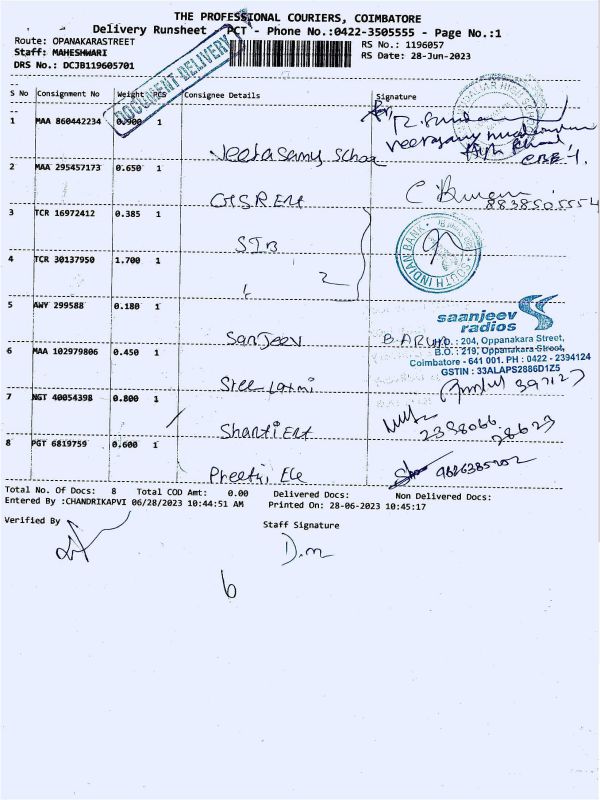 THE PROFESSIONAL COURIERS, COIMBATORE
Delivery Runsheet - PCT - Phone No.:0422-3505555 - Page No.:1
Route: OPANAKARASTREET
RS No.: 1196057
Staff: MAHESHWARI
RS Date: 28-Jun-2023
DRS No.: DCJB119605701
DOCUMENT-DELIVERY
S No Consignment No Weight PCS Consignee Details Signature
1 MAA 860442234 0.900 1
Veerasamy School
2 MAA 295457173 0.650 1
8838505554
3 TCR 16972412 0.385 1
SIB
SOUTH INDIAN BANK
4 TCR 30137950 1.700 1
2
5 AWY 299588 0.180 1
Sanjeev
saanjeev
radios
B.ARUN
D.O. : 204, Oppanakara Street,
B.O. : 219, Oppanakara Street,
Coimbatore - 641 001. PH : 0422 - 2394124
GSTIN : 33ALAPS2886D1Z5
6 MAA 102979806 0.450 1
Sree Laxmi
7 NGT 40054398 0.800 1
Shanti Ent
2398066
28623
8 PGT 6819759 0.600 1
Total No. Of Docs: 8 Total COD Amt: 0.00 Delivered Docs: Non Delivered Docs:
Entered By :CHANDRIKAPVI 06/28/2023 10:44:51 AM Printed On: 28-06-2023 10:45:17
Verified By
Staff Signature
D.m
6